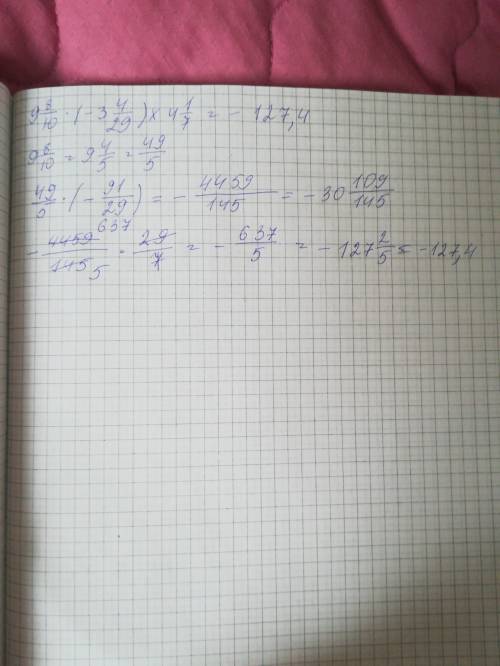 9 8/10 · (-3 4/29) × 4 1/7 = - 127,4
9 8/10 = 9 4/5 = 49/5
49/5 · (- 91/29) = - 4459/145 = - 30 109/145
- 4459 637/145 5 · 29/7 = - 637/5 = - 127 2/5 = -127,4